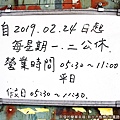 自2019.02.24日起
每星期一.二公休.
營業時間 05:30~11:00
平日
05:30~11:30.